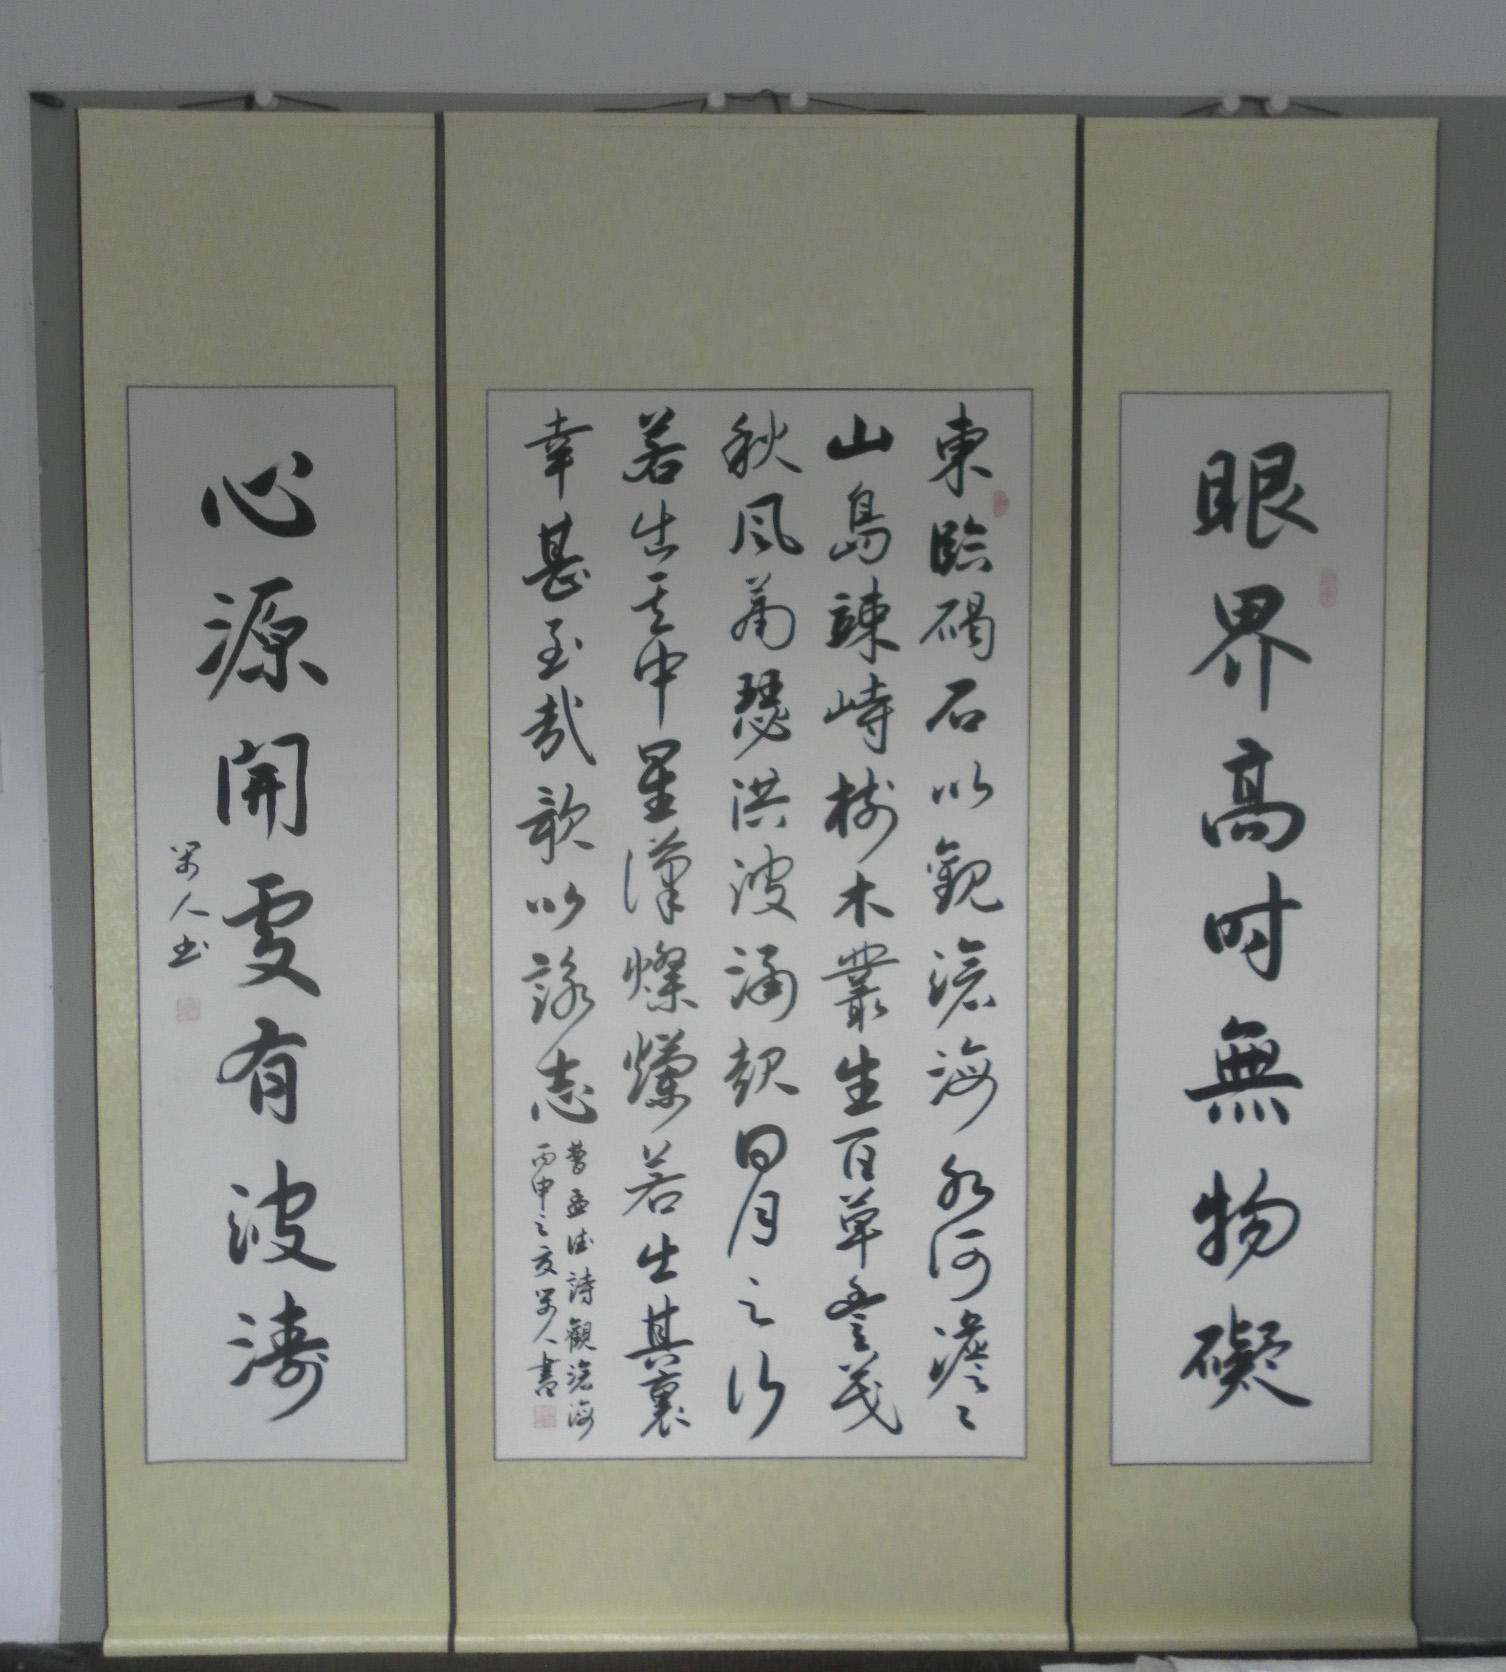 眼界高时無物礙
東臨碣石以觀滄海水何澹々
山島竦峙樹木叢生百草豐茂
秋風蕭瑟洪波涌起日月之行
若出其中星漢燦爛若出其裏
幸甚至哉歌以詠志
曹孟德詩觀滄海
丙申之夏人書
心源開處有波濤
人书